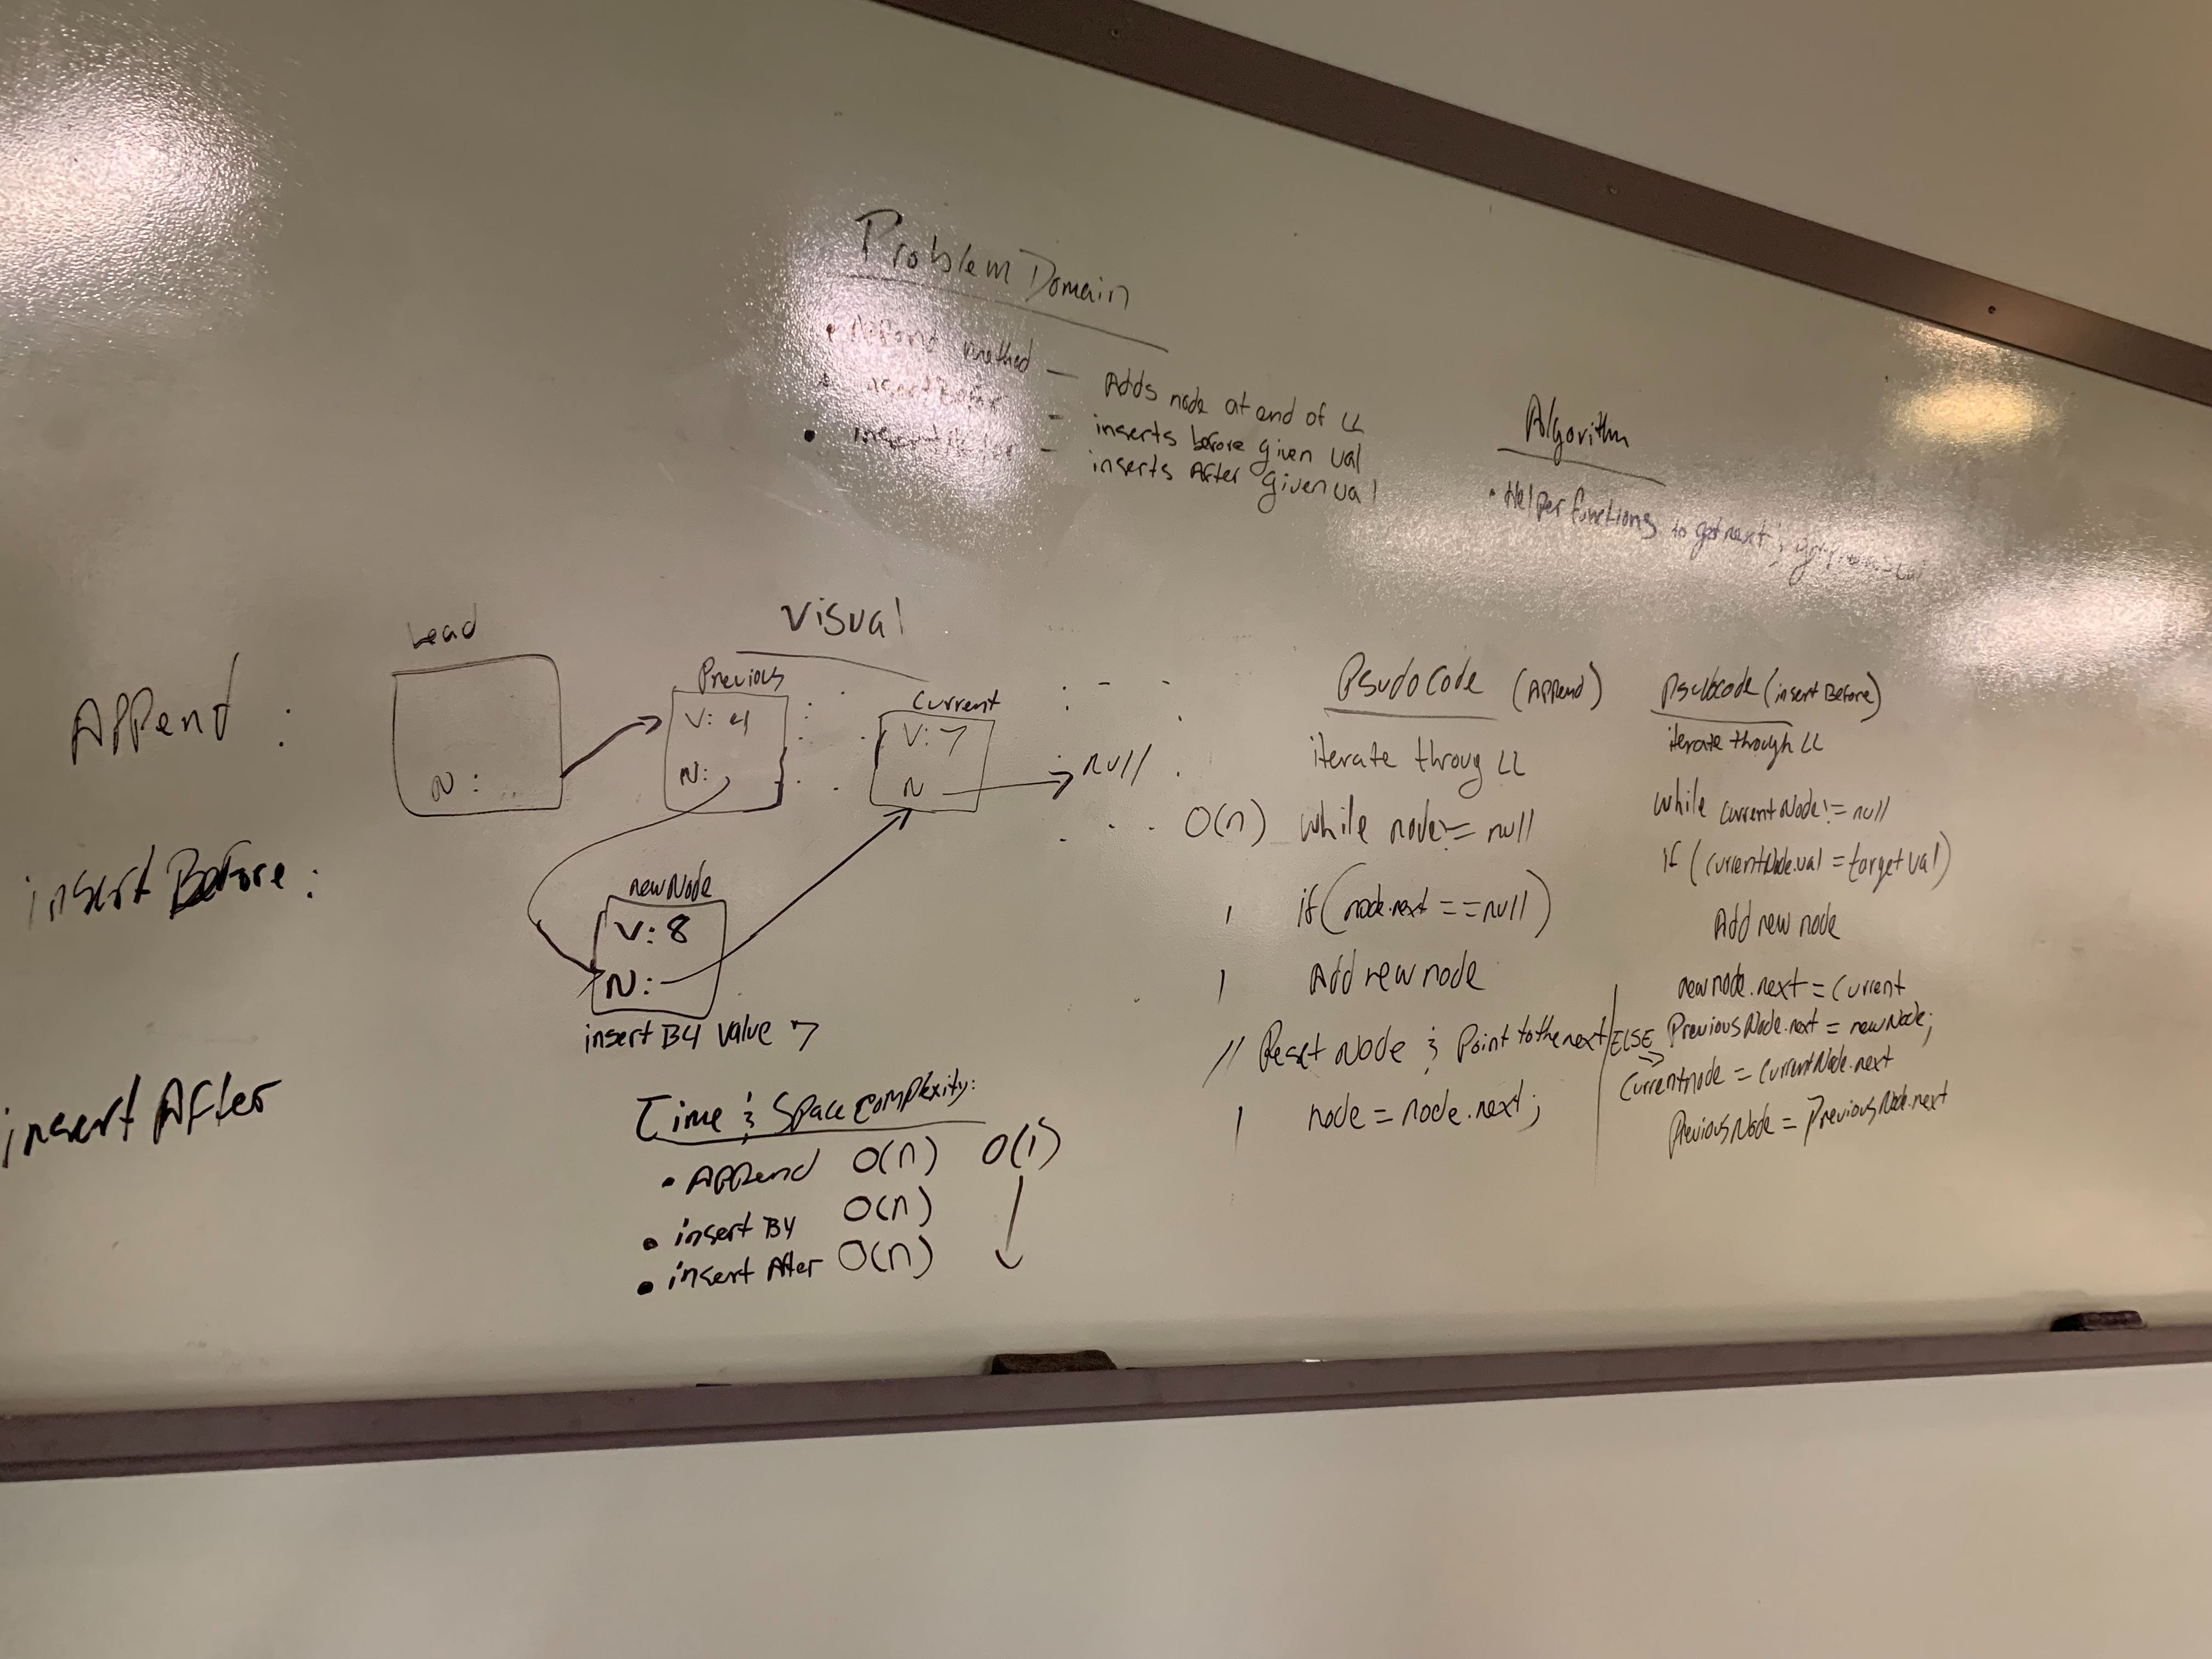 Problem Domain
• Append method — Adds node at end of LL
• insertBefore — inserts before given val
• insertAfter — inserts After given val
Algorithm
• Helper functions to get next &
Visual
Append :
head
N :
Previous
V: 4
N:
Current
V: 7
N
null
insert Before :
newNode
V: 8
N:
insert B4 value 7
insert After
Time & Space complexity:
• Append O(n) O(1)
• insert B4 O(n)
• insert After O(n)
Psudo Code (Append)
iterate throug LL
O(n) while node != null
1 if (node.next == null)
1 Add new node
// Reset Node & Point to the next
1 node = node.next;
Psudocode (insert Before)
iterate through LL
while currentNode != null
if (currentNode.val = target val)
Add new node
newnode.next = Current
PreviousNode.next = newNode;
ELSE
Currentnode = CurrentNode.next
PreviousNode = PreviousNode.next